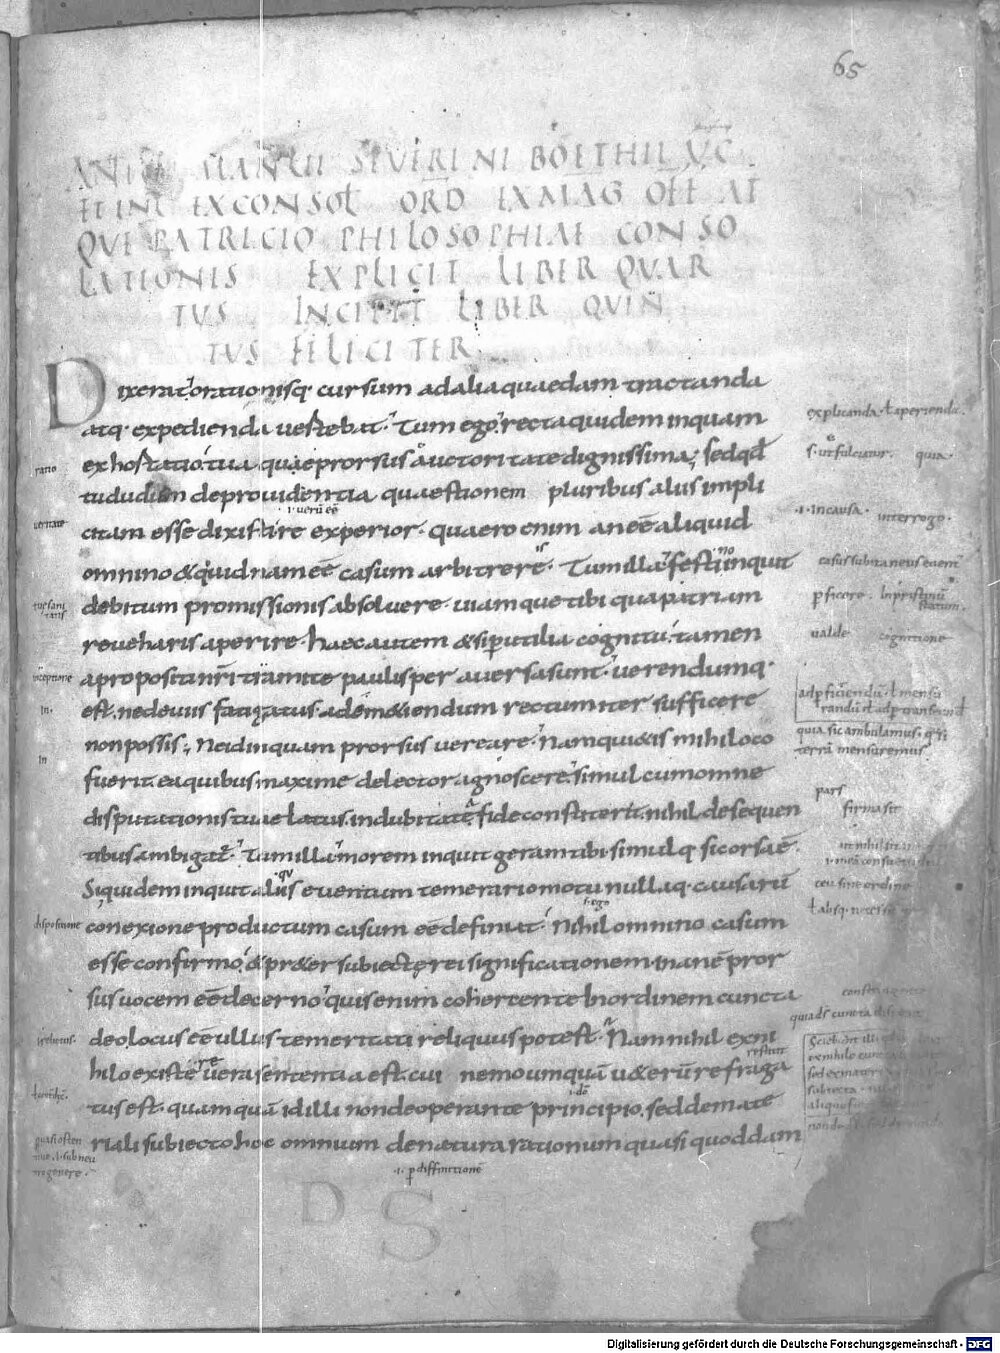 65
ANICII MANLII SEVERINI BOETHII V̅C̅
ET INL EXCONSOL ORD EXMAG OFF AT
QVE PATRICIO PHILOSOPHIAE CONSO
LATIONIS EXPLICIT LIBER QVAR
TVS INCIPIT LIBER QVIN
TVS FELICITER
Dixerat orationisq· cursum ad alia quaedam tractanda
atq· expedienda uertebat. Tum ego recta quidem inquam
exhortatio tua quae prorsus auctoritate dignissima; sed qd̅
tu dudum de prouidentia quaestionem pluribus aliis impli
citam esse dixisti re experior. quaero enim an ee̅ aliquid
omnino & quidnam ee̅ casum arbitrere. Tum illa festino inquit
debitum promissionis absoluere. uiamque tibi qua patriam
reueharis aperire. haec autem & si putilia cognitu. tamen
a propositi nr̅i tramite paulisper auersa sunt. uerendumq·
est. ne deuiis fatigatus ad em&iendum rectum iter sufficere
non possis; Ne id inquam prorsus uereare. Nam qui&is mihi loco
fuerit. ea quibus maxime delector agnoscere. simul cum omne
disputationis tuae latus indubitata fide constiterit. nihil de sequen
tibus ambigat̅. Tum illa morem inquit geram tibi. simulq· sic orsa e̅.
Siquidem inquit aliquis euentum temerario motu nullaq· causaru̅
conexione productum casum ee̅ definiat. Nihil omnino casum
esse confirmo. & pr&er subiectae rei significationem inane̅ pror
sus uocem ee̅ decerno. quis enim cohercente in ordinem cuncta
deo locus ee̅ ullus temeritati reliquus potest. Nam nihil ex ni
hilo existere uera sententia est. cui nemo umqua̅ u&eru̅ refraga
tus est. quamqua̅ id illi non de operante principio. sed de mate
riali subiecto hoc omnium de natura rationum quasi quoddam
explicanda. ł aperienda.
quia
.i. In causa. interrogo.
ualde
cognitione
quia sic ambulamus. qsi
terra̅ mensuremus
pars
firma sit
ratio
dispositione
.i. ueru̅ ee̅
s. ego
.i. do̅
.i. p diffinitione̅
D S
Digitalisierung gefördert durch die Deutsche Forschungsgemeinschaft - DFG